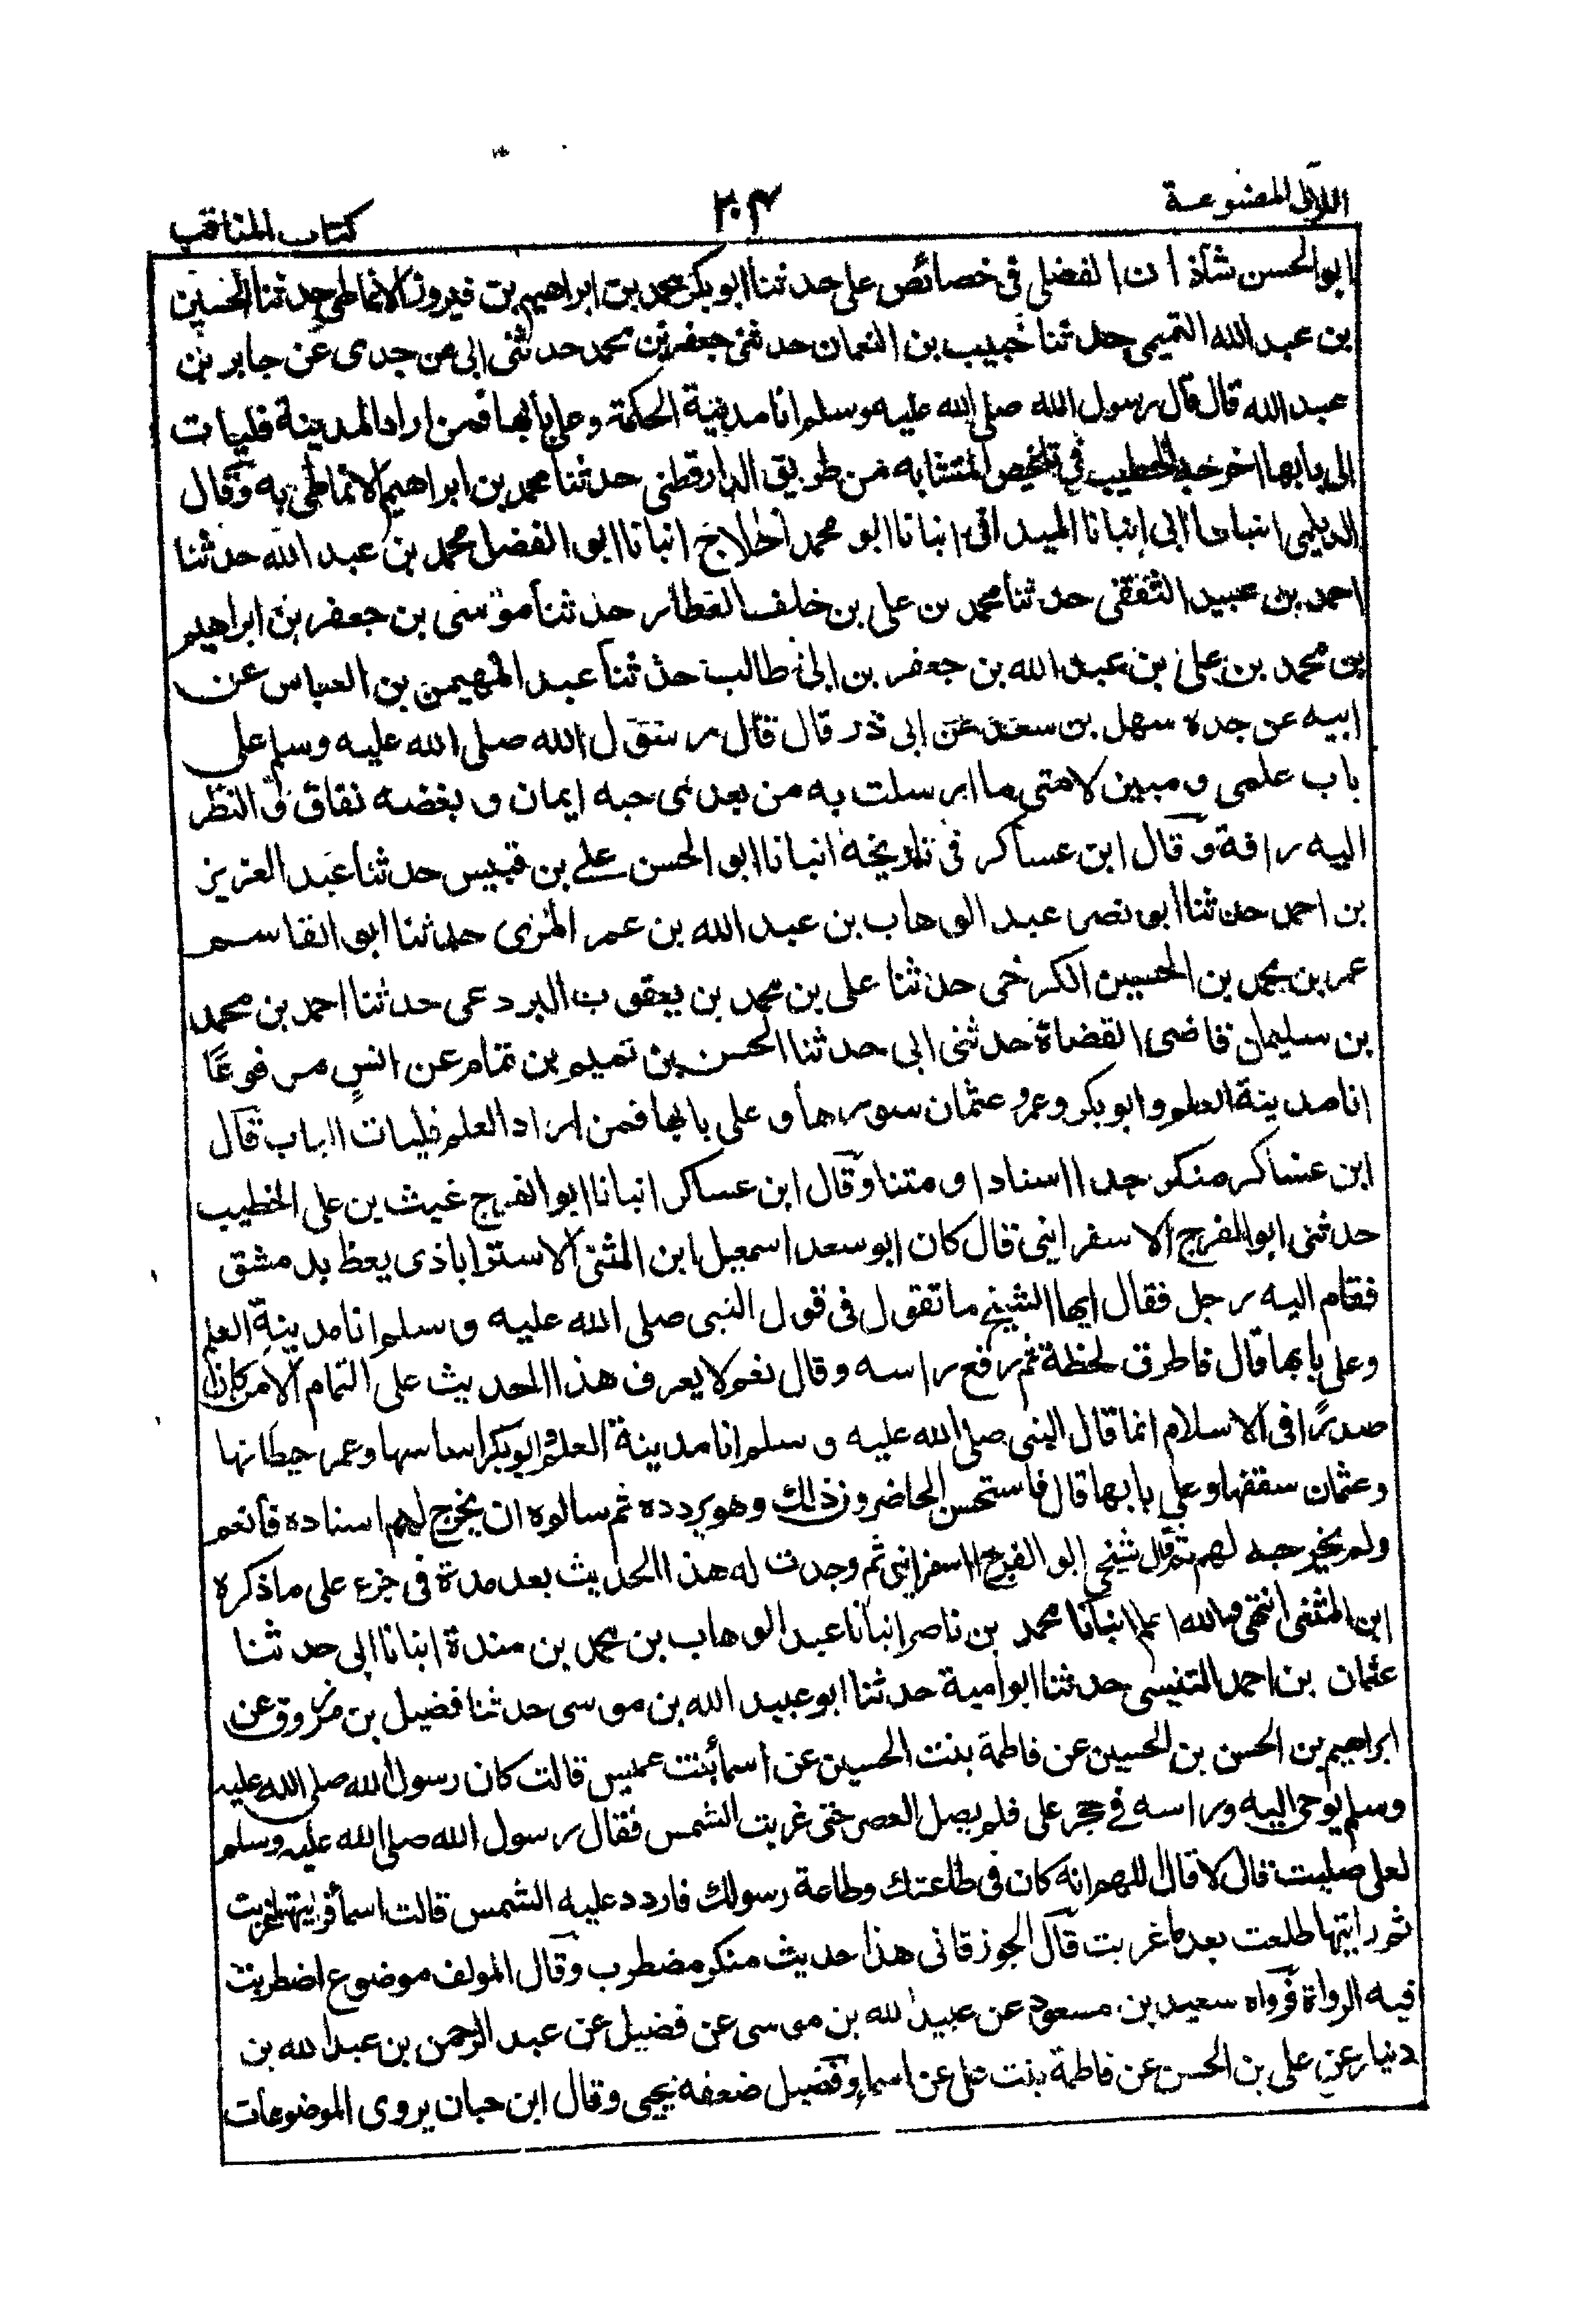 اللآلى المصنوعة
٢٠٤
كتاب المناقب
ابوالحسن شاذان الفضلى فى خصائص على حدثنا ابوبكر محمد بن ابراهيم بن فيروز الانماطى حدثنا الحسين
بن عبد الله التميمى حدثنا خبيب بن النعمان حدثنى جعفر بن محمد حدثنى ابى عن جدى عن جابر بن
عبد الله قال قال رسول الله صلى الله عليه وسلم انا مدينة الحكمة وعلى بابها فمن اراد المدينة فليات
الى بابها اخرجه الخطيب فى تلخيص المتشابه من طريق الدارقطنى حدثنا محمد بن ابراهيم الانماطى به وقال
الديلمى انبانا ابى انبانا الميدانى انبانا ابو محمد الحلاج انبانا ابو الفضل محمد بن عبد الله حدثنا
احمد بن عبيد الثقفى حدثنا محمد بن على بن خلف العطار حدثنا موسى بن جعفر بن ابراهيم
بن محمد بن على بن عبد الله بن جعفر بن ابى طالب حدثنا عبد المهيمن بن العباس عن
ابيه عن جده سهل بن سعد عن ابى ذر قال قال رسول الله صلى الله عليه وسلم على
باب علمى ومبين لامتى ما ارسلت به من بعدى حبه ايمان وبغضه نفاق والنظر
اليه رافة وقال ابن عساكر فى تاريخه انبانا ابو الحسن على بن قبيس حدثنا عبد العزيز
بن احمد حدثنا ابو نصر عبد الوهاب بن عبد الله بن عمر المزى حدثنا ابو القاسم
عمر بن محمد بن الحسين الكرخى حدثنا على بن محمد بن يعقوب البردعى حدثنا احمد بن محمد
بن سليمان قاضى القضاة حدثنى ابى حدثنا الحسن بن تميم بن تمام عن انسٍ مرفوعًا
انا مدينة العلم وابوبكر وعمر وعثمان سورها وعلى بابها فمن اراد العلم فليات الباب قال
ابن عساكر منكر جدا اسنادا ومتنا وقال ابن عساكر انبانا ابو الفرج غيث بن على الخطيب
حدثنى ابو الفرج الاسفراينى قال كان ابو سعد اسمعيل ابن المثنى الاستراباذى يعظ بدمشق
فقام اليه رجل فقال ايها الشيخ ما تقول فى قول النبى صلى الله عليه وسلم انا مدينة العلم
وعلى بابها قال فاطرق لحظة ثم رفع راسه وقال نعم لا يعرف هذا الحديث على التمام الا من كان
صدرًا فى الاسلام انما قال النبى صلى الله عليه وسلم انا مدينة العلم وابوبكر اساسها وعمر حيطانها
وعثمان سقفها وعلى بابها قال فاستحسن الحاضرون ذلك وهو يردده ثم سالوه ان يخرج لهم اسناده فأنعم
ولم يخرجه لهم ثم قال شيخى ابو الفرج الاسفراينى ثم وجدت له هذا الحديث بعد مدة فى جزء على ما ذكره
ابن المثنى انتهى والله اعلم انبانا محمد بن ناصر انبانا عبد الوهاب بن محمد بن مندة انبانا ابى حدثنا
عثمان بن احمد التنيسى حدثنا ابو امية حدثنا ابو عبيد الله بن موسى حدثنا فضيل بن مرزوق عن
ابراهيم بن الحسن بن الحسين عن فاطمة بنت الحسين عن اسمأ بنت عميس قالت كان رسول الله صلى الله عليه
وسلم يوحى اليه وراسه فى حجر على فلم يصل العصر حتى غربت الشمس فقال رسول الله صلى الله عليه وسلم
لعلى صليت قال لا قال اللهم انه كان فى طاعتك وطاعة رسولك فاردد عليه الشمس قالت اسمأ فرايتها غربت
ثم رايتها طلعت بعد ما غربت قال الجوزقانى هذا حديث منكر مضطرب وقال المولف موضوع اضطربت
فيه الرواة فرواه سعيد بن مسعود عن عبيد الله بن موسى عن فضيل عن عبد الرحمن بن عبد الله بن
دينار عن على بن الحسن عن فاطمة بنت على عن اسماء وفضيل ضعفه يحيى وقال ابن حبان يروى الموضوعات